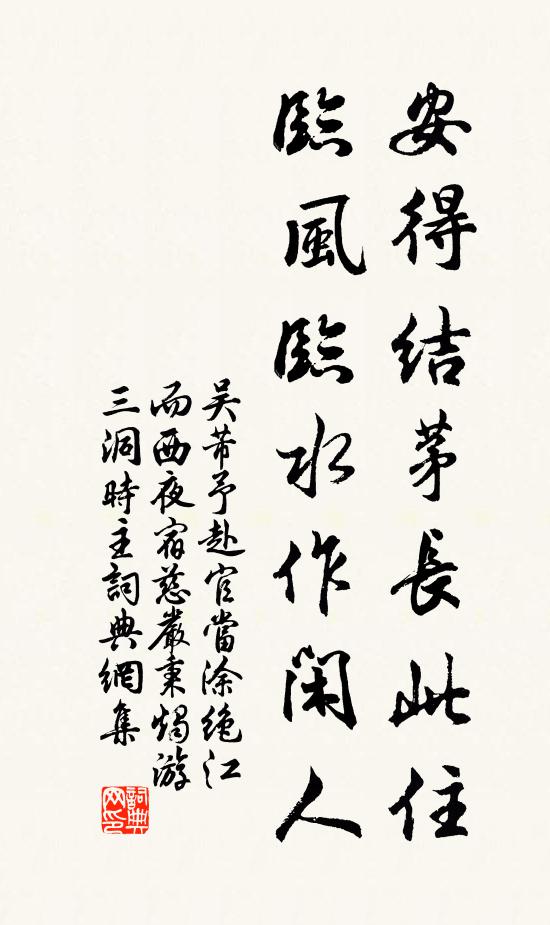 安得結茅長此住
臨風臨水作閑人
吴芾予赴官當涂絶江
而西夜宿慈嚴秉燭游
三洞時主詞典網集
詞典網印